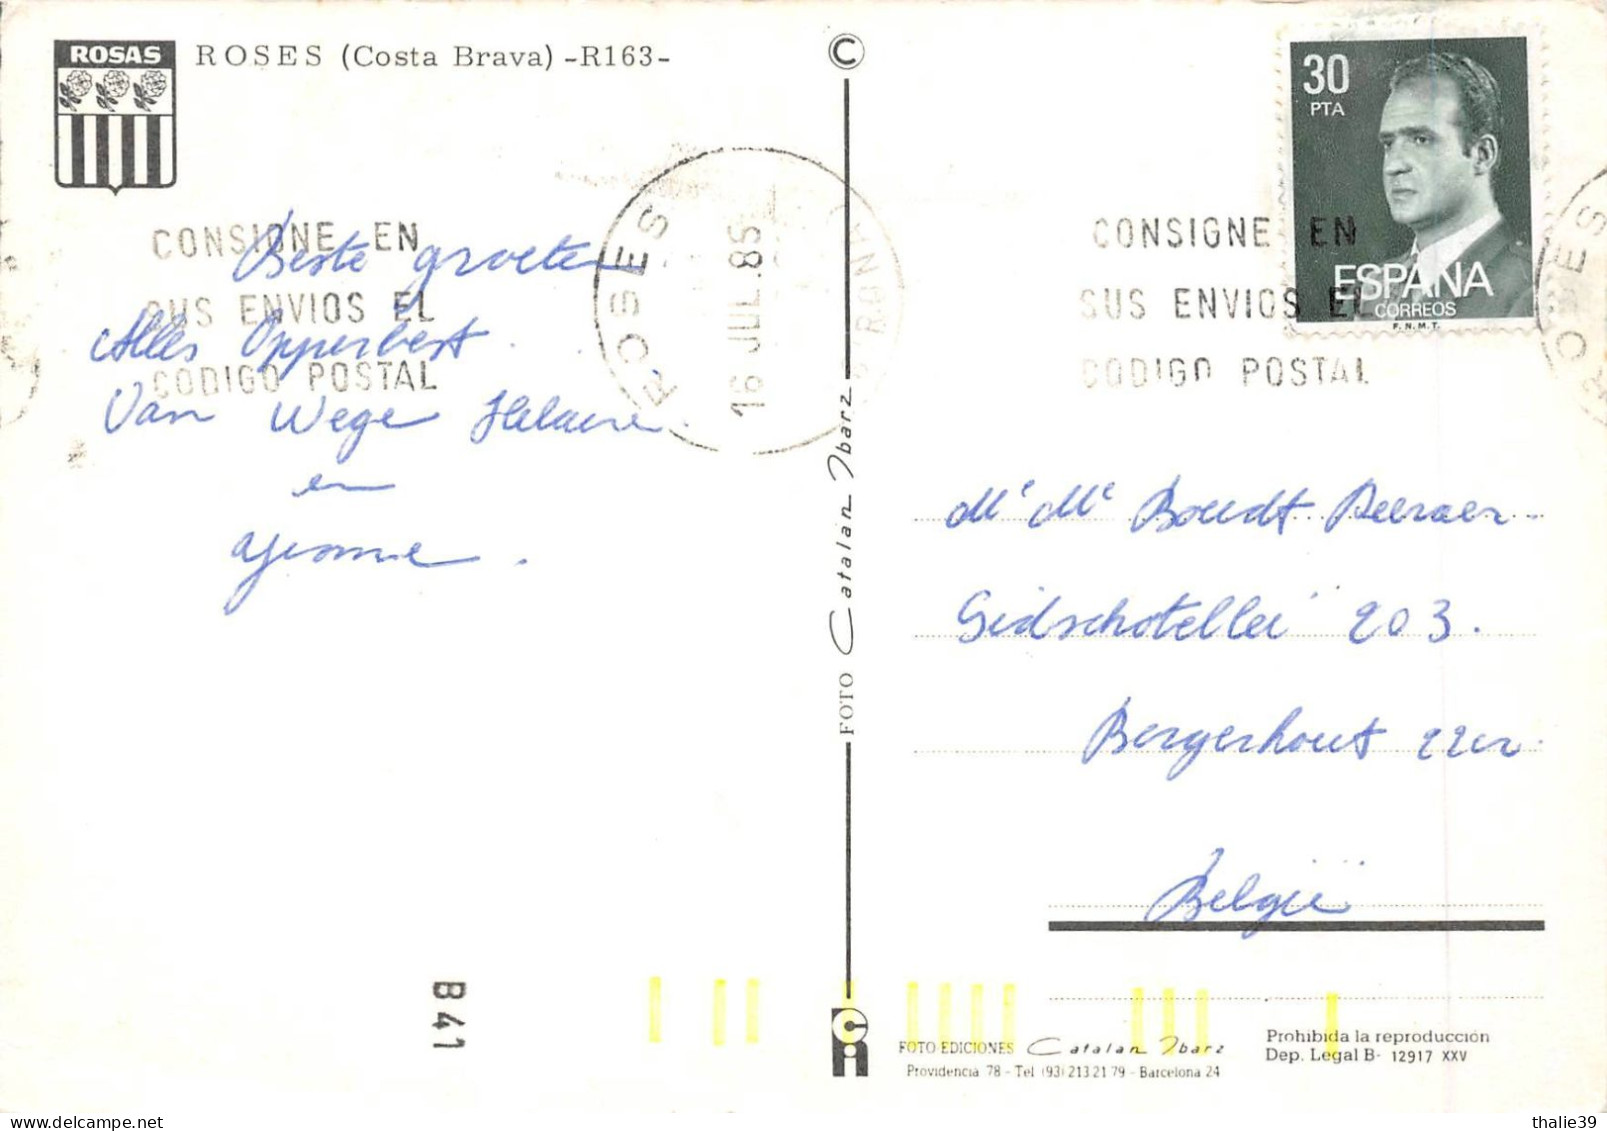 ROSAS
ROSES (Costa Brava) -R163-
©
30
PTA
ESPAÑA
CORREOS
F.N.M.T.
CONSIGNE EN
SUS ENVIOS EL
CODIGO POSTAL
ROSES
16 JUL. 85
CONSIGNE EN
SUS ENVIOS EL
CODIGO POSTAL
Beste groeten
Alles Opperbest.
Van Wege
en
FOTO Catalan Ibarz
Mr Me Boudt
203.
Bergerhout
België
B41
FOTO EDICIONES Catalan Ibarz
Providencia 78 - Tel (93) 213 21 79 - Barcelona 24
Prohibida la reproducción
Dep. Legal B- 12917 XXV
thalie39